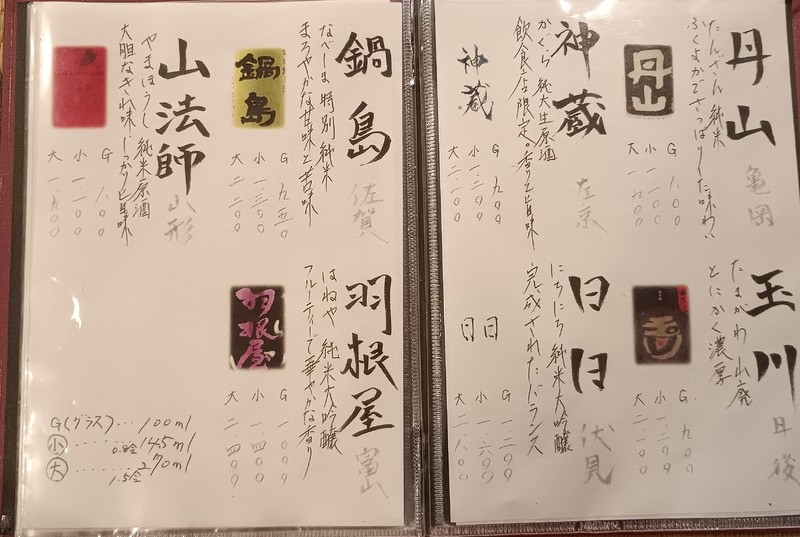 丹山 亀岡
たんざん 純米
ふくよかでさっぱりした味わい
丹山
G 八〇〇
小 一.一〇〇
大 一.九〇〇
玉川 丹後
たまがわ 山廃
とにかく濃厚
G 九〇〇
小 一.二〇〇
大 二.一〇〇
神蔵 左京
かぐら 純大生原酒
飲食店限定。香りと旨味
神蔵
日日 伏見
にちにち 純米大吟醸
完成されたバランス
日日
G 一.二〇〇
大 二.八〇〇
鍋島 佐賀
なべしま 特別純米
まろやかな甘味と苦味
鍋島
G 九五〇
小 一.三〇〇
大 二.二〇〇
羽根屋 富山
はねや 純米大吟醸
フルーティーで華やかな香り
羽根屋
小 一.四〇〇
大 二.四〇〇
山法師 山形
やまほうし 純米原酒
大胆なきれ味 しっかり旨味
G 八〇〇
小 一.一〇〇
大 一.九〇〇
G(グラス)… 100ml
小 …… 0.8合 145ml
大 …… 1.5合 270ml